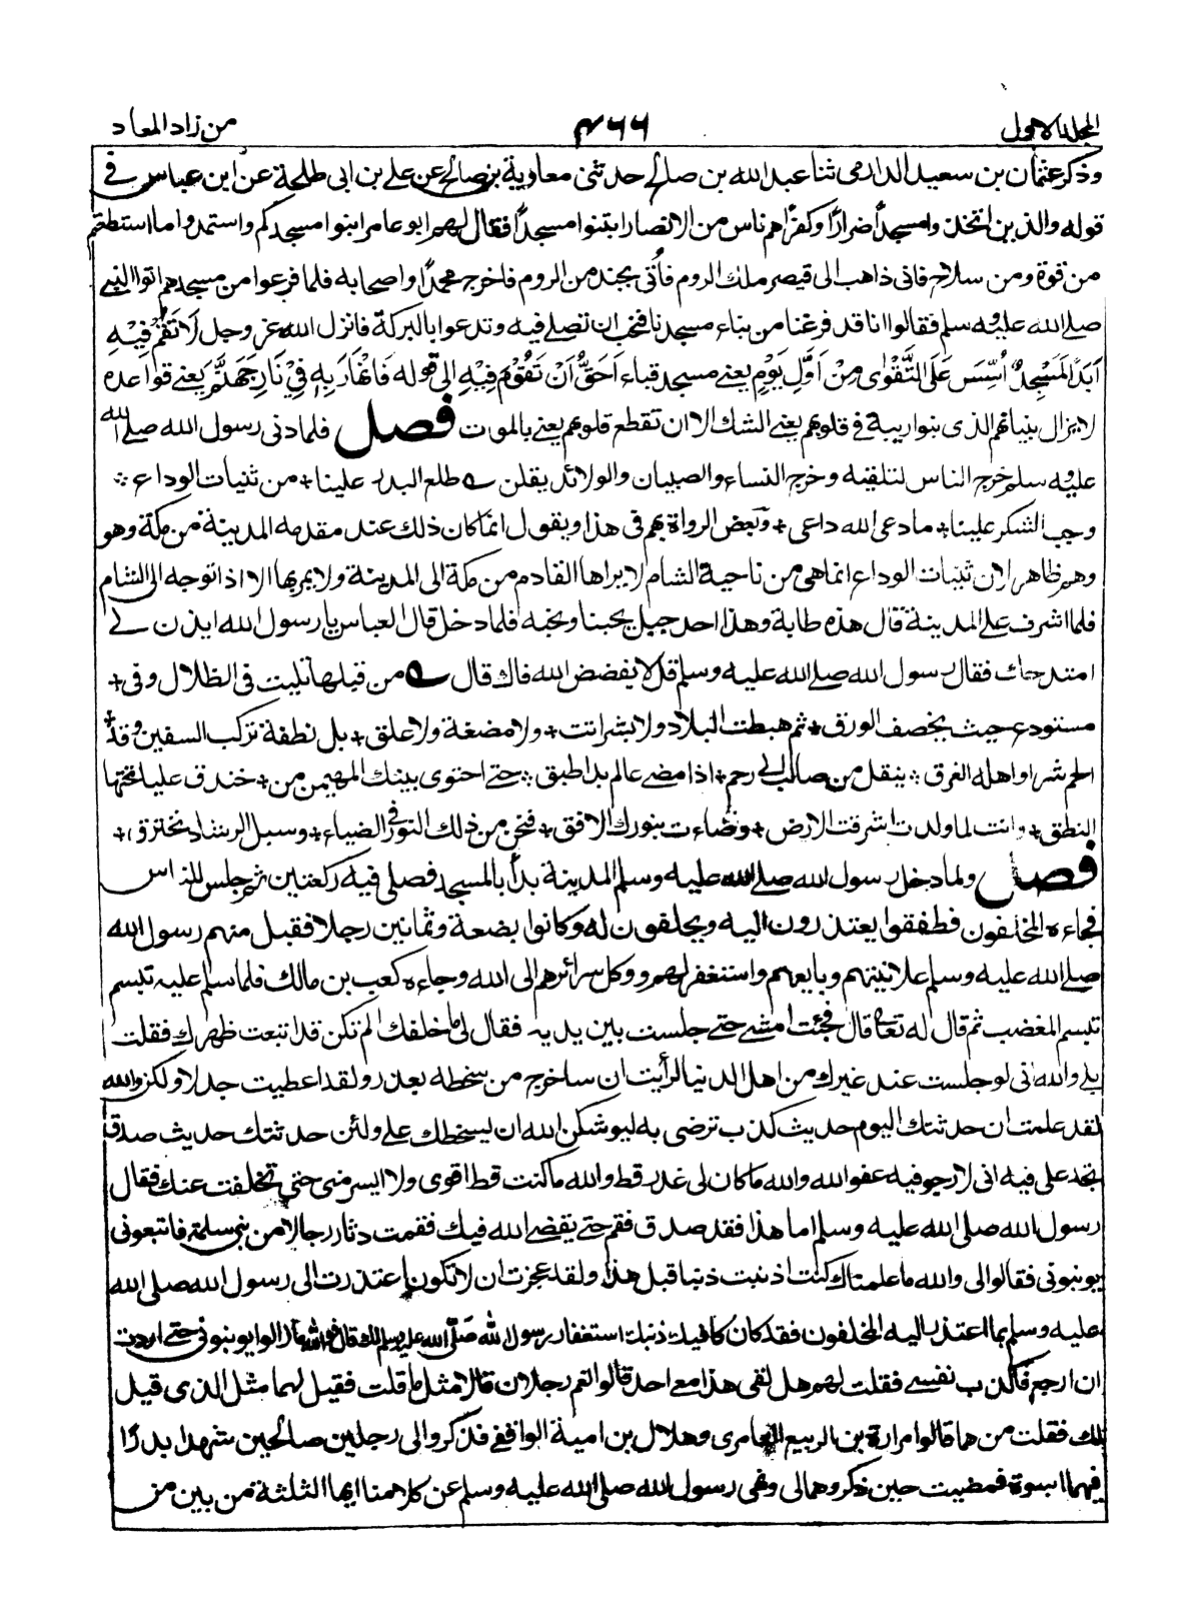 المجلد الاول ۴۶۶ من زاد المعاد
وذكر عثمان بن سعيد الدارمى ثنا عبد الله بن صالح حدثنى معاوية بن صالح عن على بن ابى طلحة عن ابن عباس فى
قوله والذين اتخذوا مسجدا ضرارا وكفرا هم ناس من الانصار ابتنوا مسجدا فقال لهم ابو عامر ابنوا مسجدكم واستمدوا ما استطعتم
من قوة ومن سلاح فانى ذاهب الى قيصر ملك الروم فأتى بجند من الروم فاخرج محمدا واصحابه فلما فرغوا من مسجدهم اتوا النبى
صلى الله عليه وسلم فقالوا انا قد فرغنا من بناء مسجدنا فنحب ان تصلى فيه وتدعوا بالبركة فانزل الله عز وجل لَا تَقُمْ فِيْهِ
اَبَدًا لَمَسْجِدٌ اُسِّسَ عَلَى التَّقْوٰى مِنْ اَوَّلِ يَوْمٍ يعنى مسجد قباء اَحَقُّ اَنْ تَقُوْمَ فِيْهِ الى قوله فَانْهَارَ بِهٖ فِيْ نَارِ جَهَنَّمَ يعنى قواعده
لا يزال بنيانهم الذى بنوا ريبة فى قلوبهم يعنى الشك الا ان تقطع قلوبهم يعنى بالموت فصل فلما دنى رسول الله صلى الله
عليه وسلم خرج الناس لتلقيه وخرج النساء والصبيان والولائد يقلن ے طلع البدر علينا + من ثنيات الوداع ÷
وجب الشكر علينا + ما دعى الله داعى + وبعض الرواة يهم فى هذا ويقول انما كان ذلك عند مقدمه المدينة من مكة وهو
وهم ظاهر لان ثنيات الوداع انما هى من ناحية الشام لا يراها القادم من مكة الى المدينة ولا يمر بها الا اذا توجه الى الشام
فلما اشرف على المدينة قال هذه طابة وهذا احد جبل يحبنا ونحبه فلما دخل قال العباس يا رسول الله ايذن لى
امتدحك فقال رسول الله صلى الله عليه وسلم قل لا يفضض الله فاك قال ے من قبلها تليت فى الظلال وفى +
مستودع حيث يخصف الورق + ثم هبطت البلاد ولا بشر انت + ولا مضغة ولا علق + بل نطفة تركب السفين وقد +
الجم شرا واهله الغرق ÷ ينقل من صالب الى رحم + اذا مضى عالم بدا طبق ÷ حتى احتوى بيتك المهيمن من + خندق عليا تحتها
النطق + وانت لما ولدت اشرقت الارض + وضاءت بنورك الافق + فنحن من ذلك النور فى الضياء + وسبل الرشاد نخترق +
فصل ولما دخل رسول الله صلى الله عليه وسلم المدينة بدأ بالمسجد فصلى فيه ركعتين ثم جلس للناس
فجاءه المخلفون فطفقوا يعتذرون اليه ويحلفون له وكانوا بضعة وثمانين رجلا فقبل منهم رسول الله
صلى الله عليه وسلم علانيتهم وبايعهم واستغفر لهم ووكل سرائرهم الى الله وجاءه كعب بن مالك فلما سلم عليه تبسم
تبسم المغضب ثم قال له تعال قال فجئت امشى حتى جلست بين يديه فقال لى ما خلفك الم تكن قد ابتعت ظهرك فقلت
بلى والله انى لو جلست عند غيرك من اهل الدنيا لرأيت ان ساخرج من سخطه بعذر ولقد اعطيت جدلا ولكن والله
لقد علمت ان حدثتك اليوم حديث كذب ترضى به ليوشكن الله ان يسخطك على ولئن حدثتك حديث صدق
تجد على فيه انى لارجو فيه عفو الله والله ما كان لى عذر قط والله ما كنت قط اقوى ولا ايسر منى حتى تخلفت عنك فقال
رسول الله صلى الله عليه وسلم اما هذا فقد صدق فقم حتى يقضى الله فيك فقمت وثار رجال من بنى سلمة فاتبعونى
يونبونى فقالوا لى والله ما علمناك كنت اذنبت ذنبا قبل هذا ولقد عجزت ان لا تكون اعتذرت الى رسول الله صلى الله
عليه وسلم بما اعتذر اليه المخلفون فقد كان كافيك ذنبك استغفار رسول الله صلى الله عليه وسلم لك قال فوالله ما زالوا يونبونى حتى اردت
ان ارجع فأكذب نفسى فقلت لهم هل لقى هذا مع احد قالوا نعم رجلان قالا مثل ما قلت فقيل لهما مثل الذى قيل
لك فقلت من هما قالوا مرارة بن الربيع العامرى وهلال بن امية الواقفى فذكروا لى رجلين صالحين شهدا بدرا
فيهما اسوة فمضيت حين ذكروهما لى ونهى رسول الله صلى الله عليه وسلم عن كلامنا ايها الثلثة من بين من